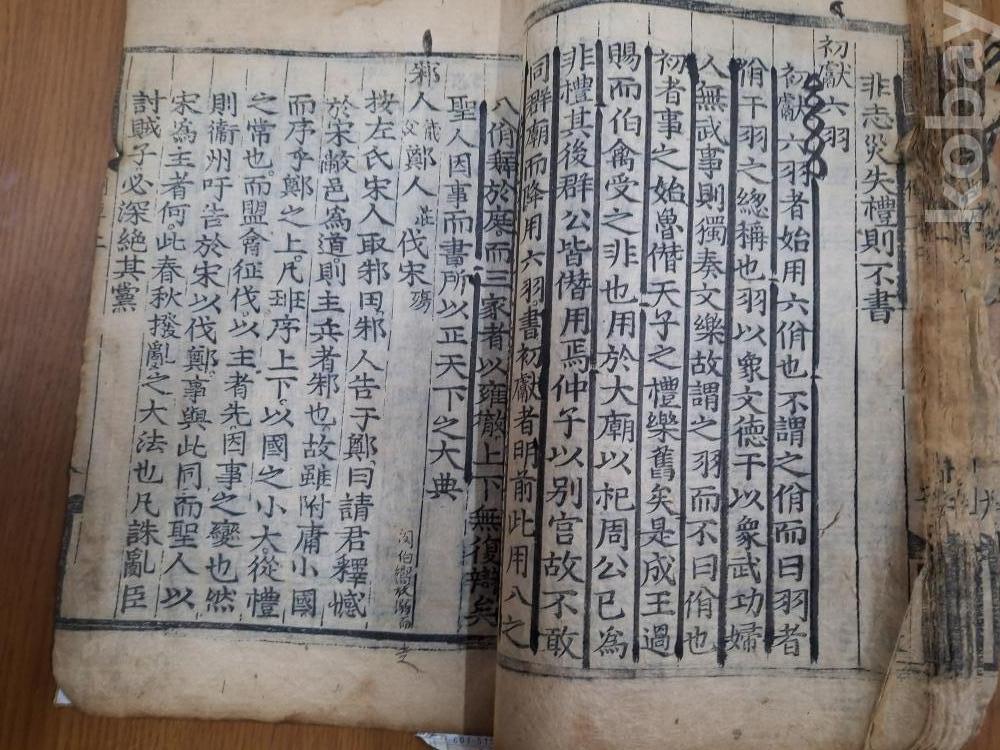 非志災失禮則不書
初獻六羽
初獻六羽者始用六佾也不謂之佾而曰羽者
佾干羽之緫稱也羽以象文德干以象武功婦
人無武事則獨奏文樂故謂之羽而不曰佾也
初者事之始魯僭天子之禮樂舊矣是成王過
賜而伯禽受之非也用於大廟以祀周公已為
非禮其後群公皆僭用焉仲子以别宫故不敢
同群廟而降用六羽書初獻者明前此用八之
八佾舞於庭而三家者以雍徹上下無復辯矣
聖人因事而書所以正天下之大典
邾人儀父鄭人莊伐宋殤
按左氏宋人取邾田邾人告于鄭曰請君釋憾
於宋敝邑爲道則主兵者邾也故雖附庸小國
而序乎鄭之上凡班序上下以國之小大從禮
之常也而盟會征伐以主者先因事之變也然
則衞州吁告於宋以伐鄭事與此同而聖人以
宋為主者何此春秋撥亂之大法也凡誅亂臣
討賊子必深絶其黨
kobay